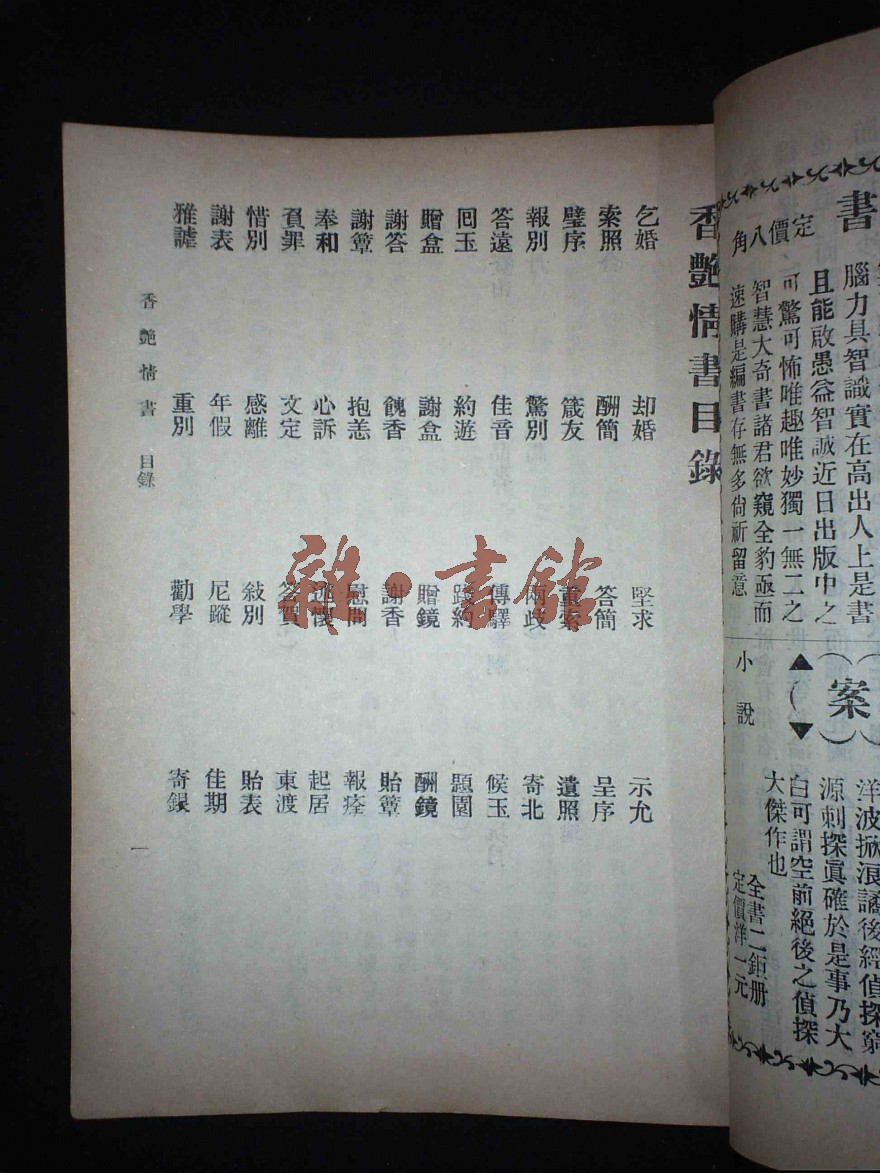 書
定價八角
腦力具智識實在高出人上是書
且能啟愚益智誠近日出版中之
可驚可怖唯趣唯妙獨一無二之
智慧大奇書諸君欲窺全豹亟而
速購是編書存無多尙祈留意
案
小說
洋波掀浪譎後經偵探窮
源刺探眞確於是事乃大
白可謂空前絕後之偵探
大傑作也
全書二鉅册
定價洋一元
香艷情書目錄
乞婚 却婚 堅求 示允
索照 酬簡 答簡 呈序
璧序 箴友 重索 遺照
報別 驚別 兩歧 寄北
答遠 佳音 傳驛 候玉
囘玉 約遊 踐約 題園
贈盒 謝盒 贈鏡 酬鏡
謝答 餽香 謝香 貽簟
謝簟 抱恙 慰問 報痊
奉和 心訴 述懷 起居
負罪 文定 答賀 東渡
惜別 感離 敍別 貽表
謝表 年假 尼蹤 佳期
雅謔 重別 勸學
香艷情書 目錄 一
雜·書館